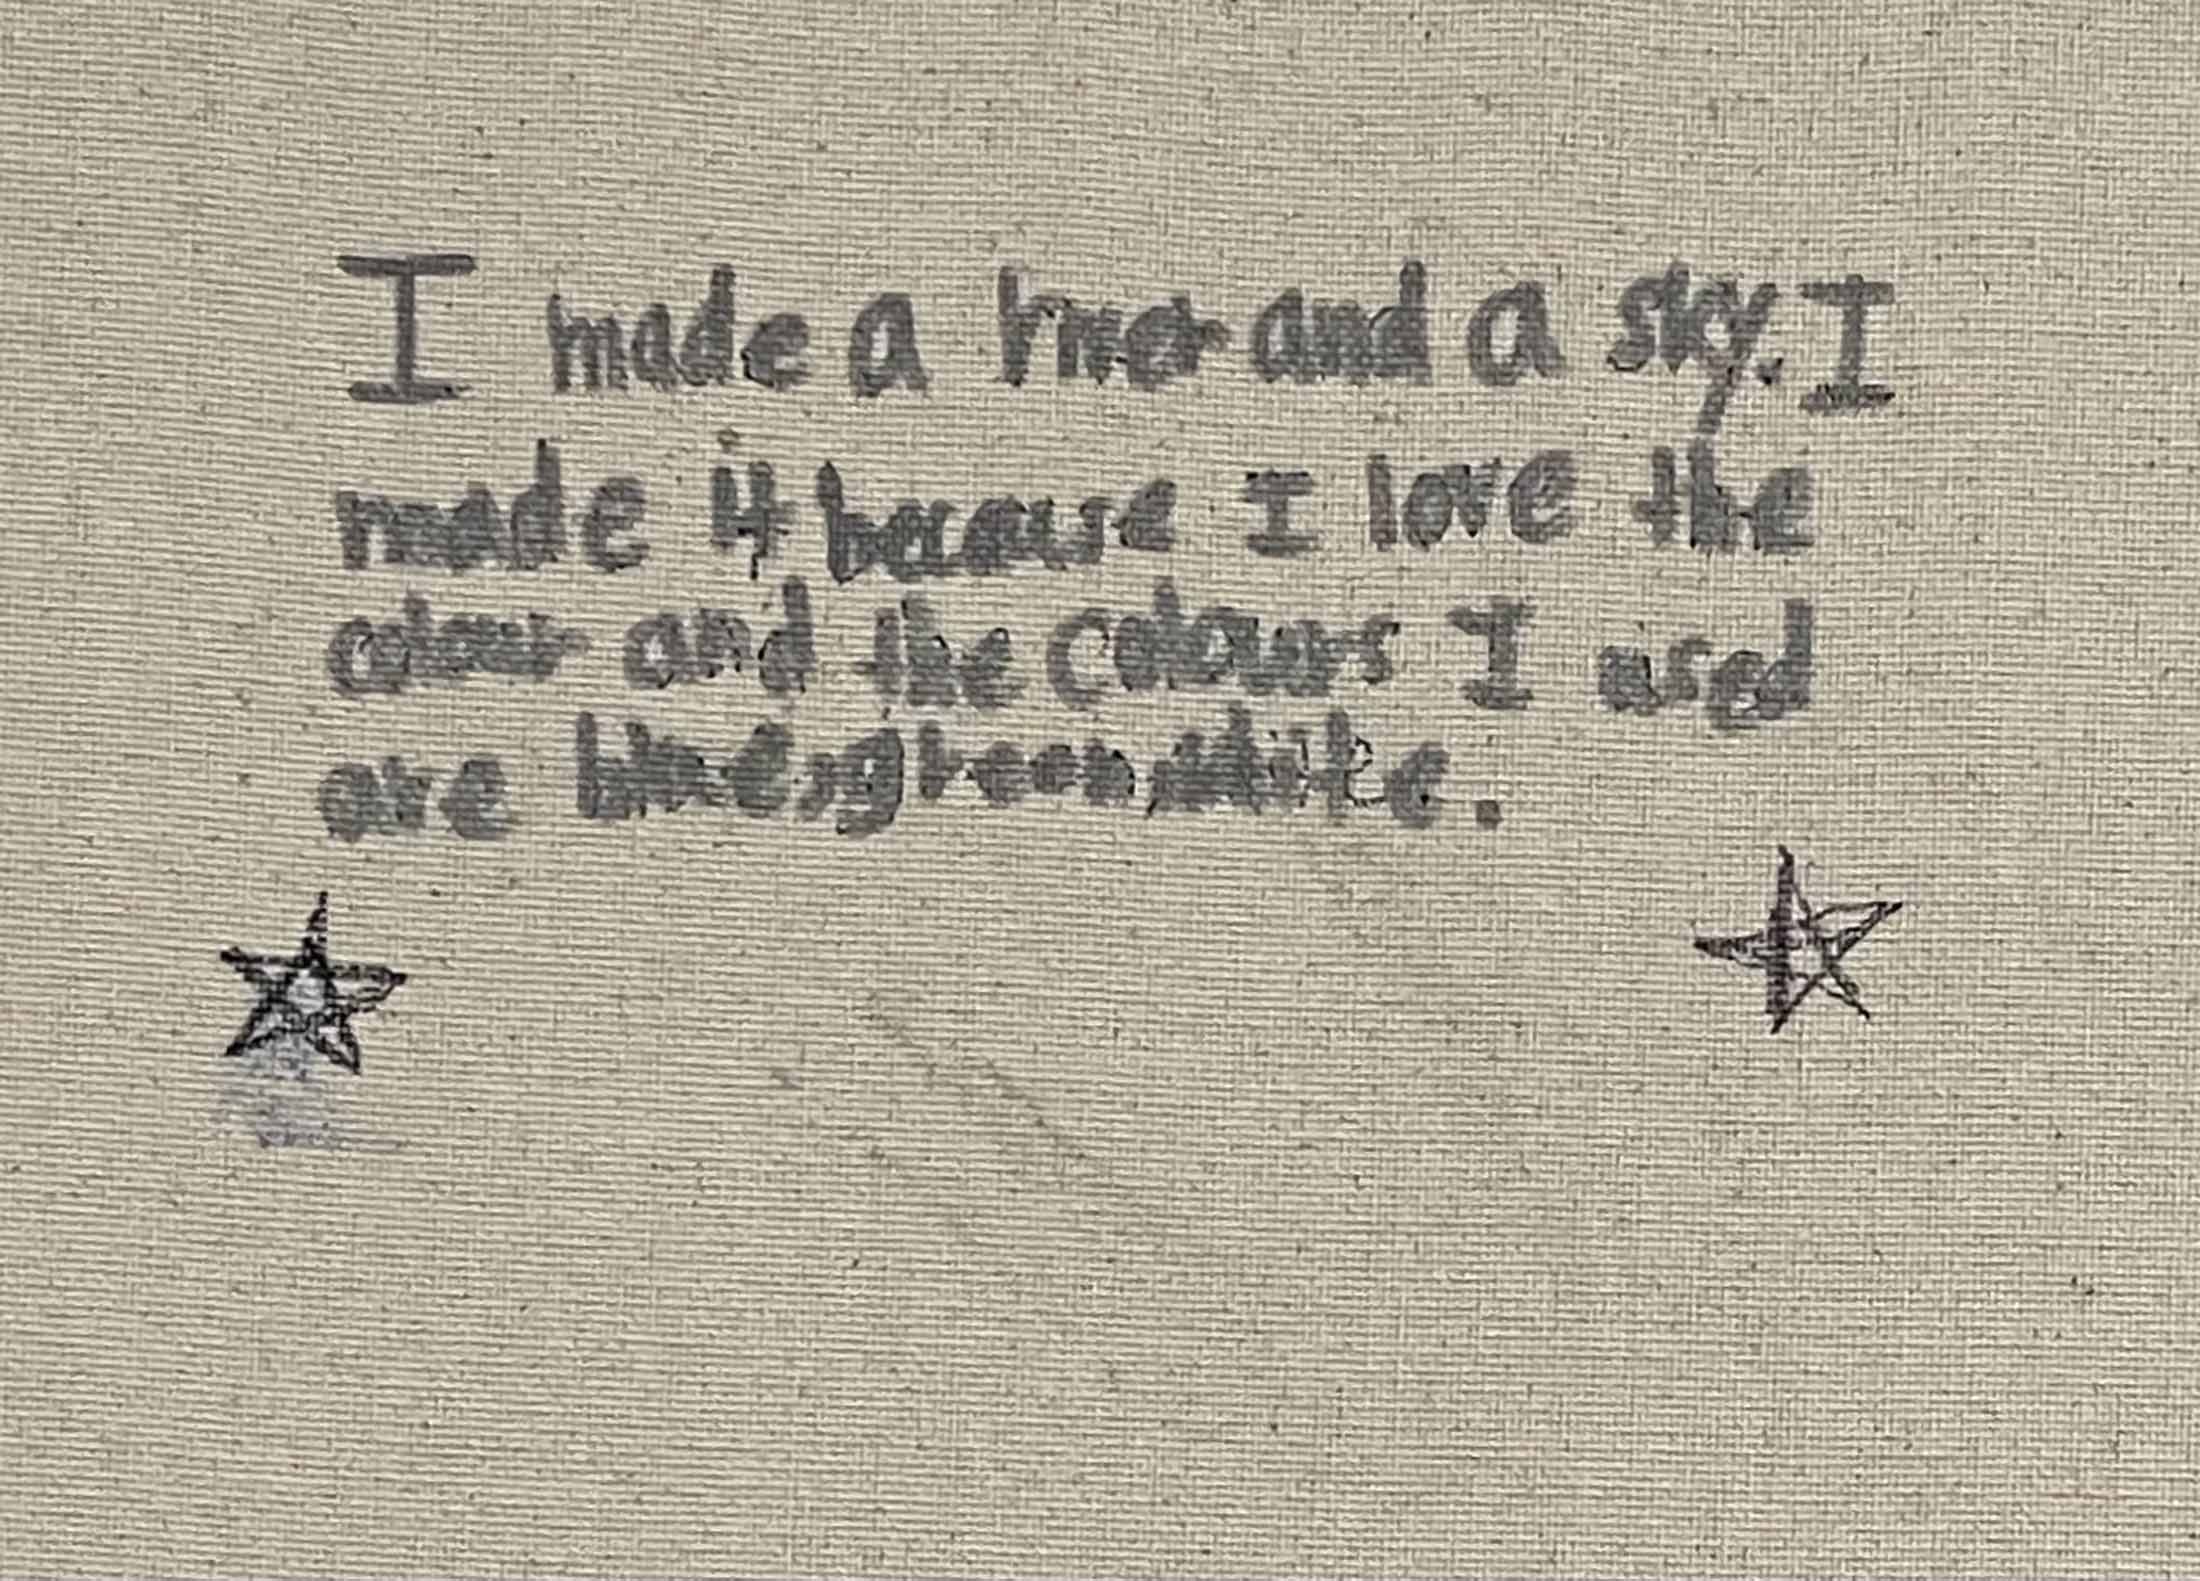 I made a river and a sky. I
made it because I love the
colour and the colours I used
are blue, green, white.